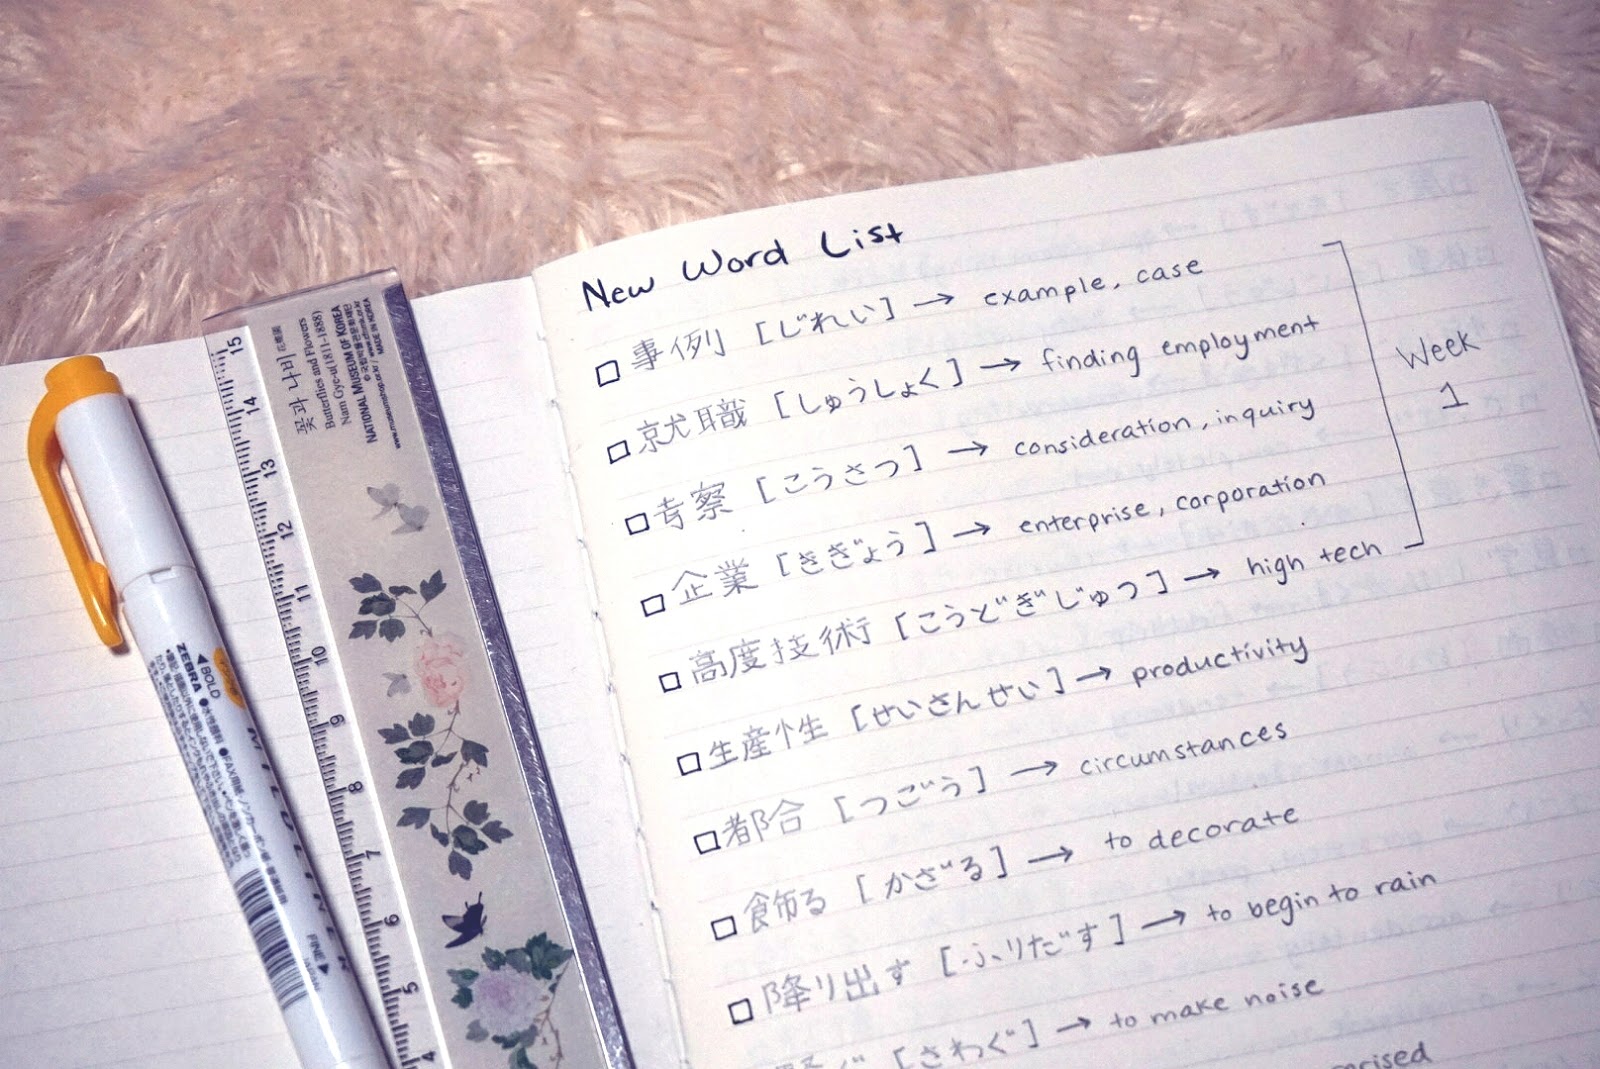 New Word List
□ 事例 [じれい] → example, case
□ 就職 [しゅうしょく] → finding employment
□ 考察 [こうさつ] → consideration, inquiry
□ 企業 [きぎょう] → enterprise, corporation
□ 高度技術 [こうどぎじゅつ] → high tech
Week
1
□ 生産性 [せいさんせい] → productivity
□ 都合 [つごう] → circumstances
□ 飾る [かざる] → to decorate
□ 降り出す [ふりだす] → to begin to rain
[さわぐ] → to make noise
꽃과 나비
Butterflies and Flowers
Nam Gye-u(1811-1888)
NATIONAL MUSEUM OF KOREA
MADE IN KOREA
15
14
13
12
11
10
9
8
7
6
5
4
◀BOLD
ZEBRA ●水性顔料
MILDLINER
FINE▶